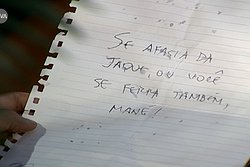 SE AFASTA DA
JAQUE, OU VOCÊ
SE FERRA TAMBÉM,
MANÉ!